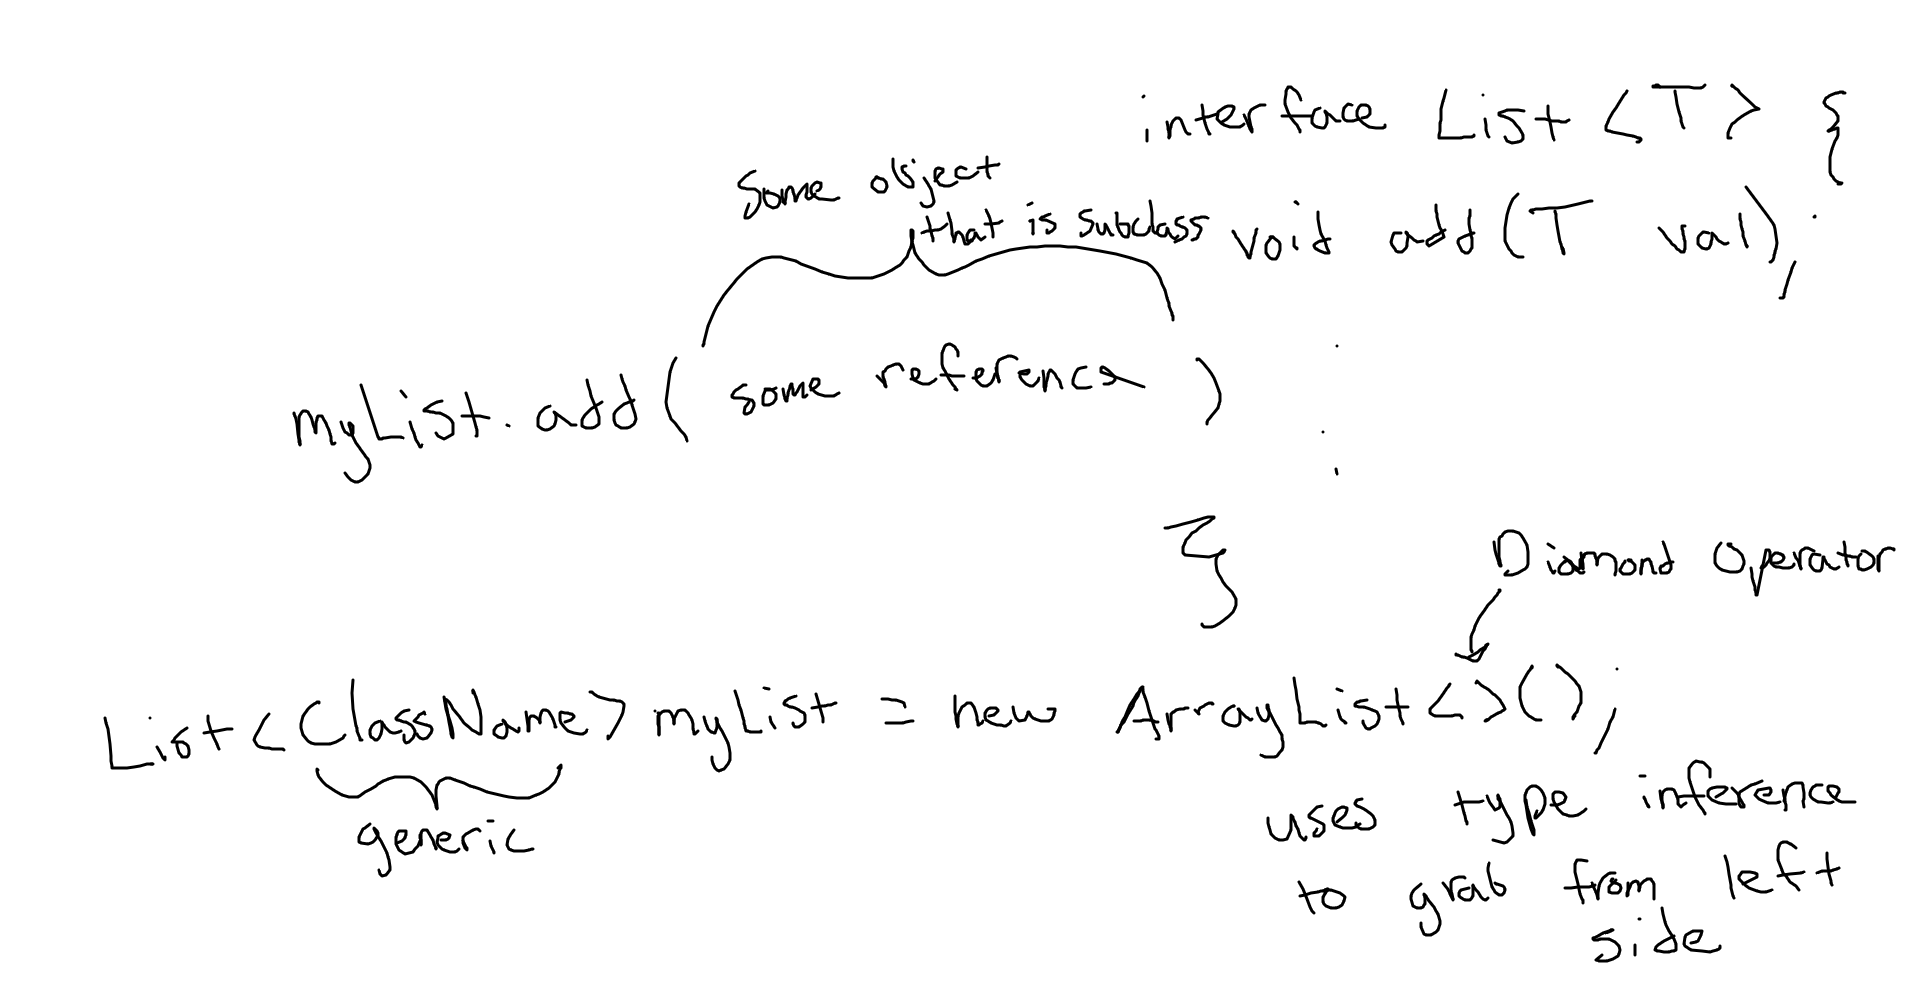 interface List <T> {
some object
that is subclass
void add(T val);
myList.add( some reference )
}
Diamond Operator
List<ClassName> myList = new ArrayList<>();
generic
uses type inference
to grab from left
side